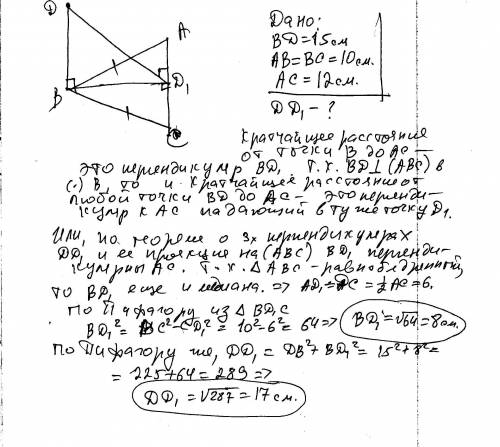 D
A
B
D₁
C
Дано:
BD=15см
AB=BC=10см.
AC=12см.
DD₁-?
Кратчайшее расстояние
от точки B до AC —
это перпендикуляр BD₁ Т.К. BD⊥(ABC) в
(·) B, то и кратчайшее расстояние от
любой точки BD до AC — это перпенди-
куляр к AC падающий в ту же точку D₁.
Или, по теореме о 3х перпендикулярах
DD₁ и ее проекция на (ABC) BD₁ перпенди-
кулярны AC. Т.к. △ABC - равнобедренный,
то BD₁ еще и медиана. => AD₁=DC=½AC=6.
По Пифагору из △BD₁C
BD₁²= BC²-CD₁²= 10²-6²= 64 => BD₁=√64=8см.
По Пифагору же, DD₁= DB²+BD₁²= 15²+8²=
= 225+64=289 =>
DD₁=√287=17см.